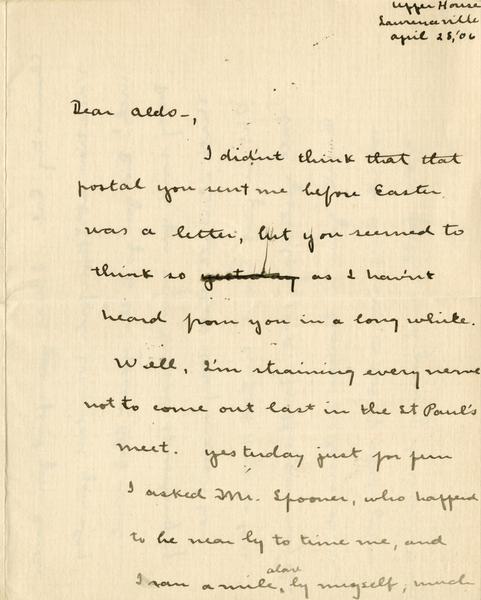 Upper House
Lawrenceville
April 28, '06
Dear Aldo-,
I didn't think that that
postal you sent me before Easter
was a letter, but you seemed to
think so yesterday as I hav'nt
heard from you in a long while.
Well, I'm straining every nerve
not to come out last in the St Paul's
meet. Yesterday just for fun
I asked Mr. Spooner, who happend
to be near by to time me, and
alone
I ran a mile, by myself, much